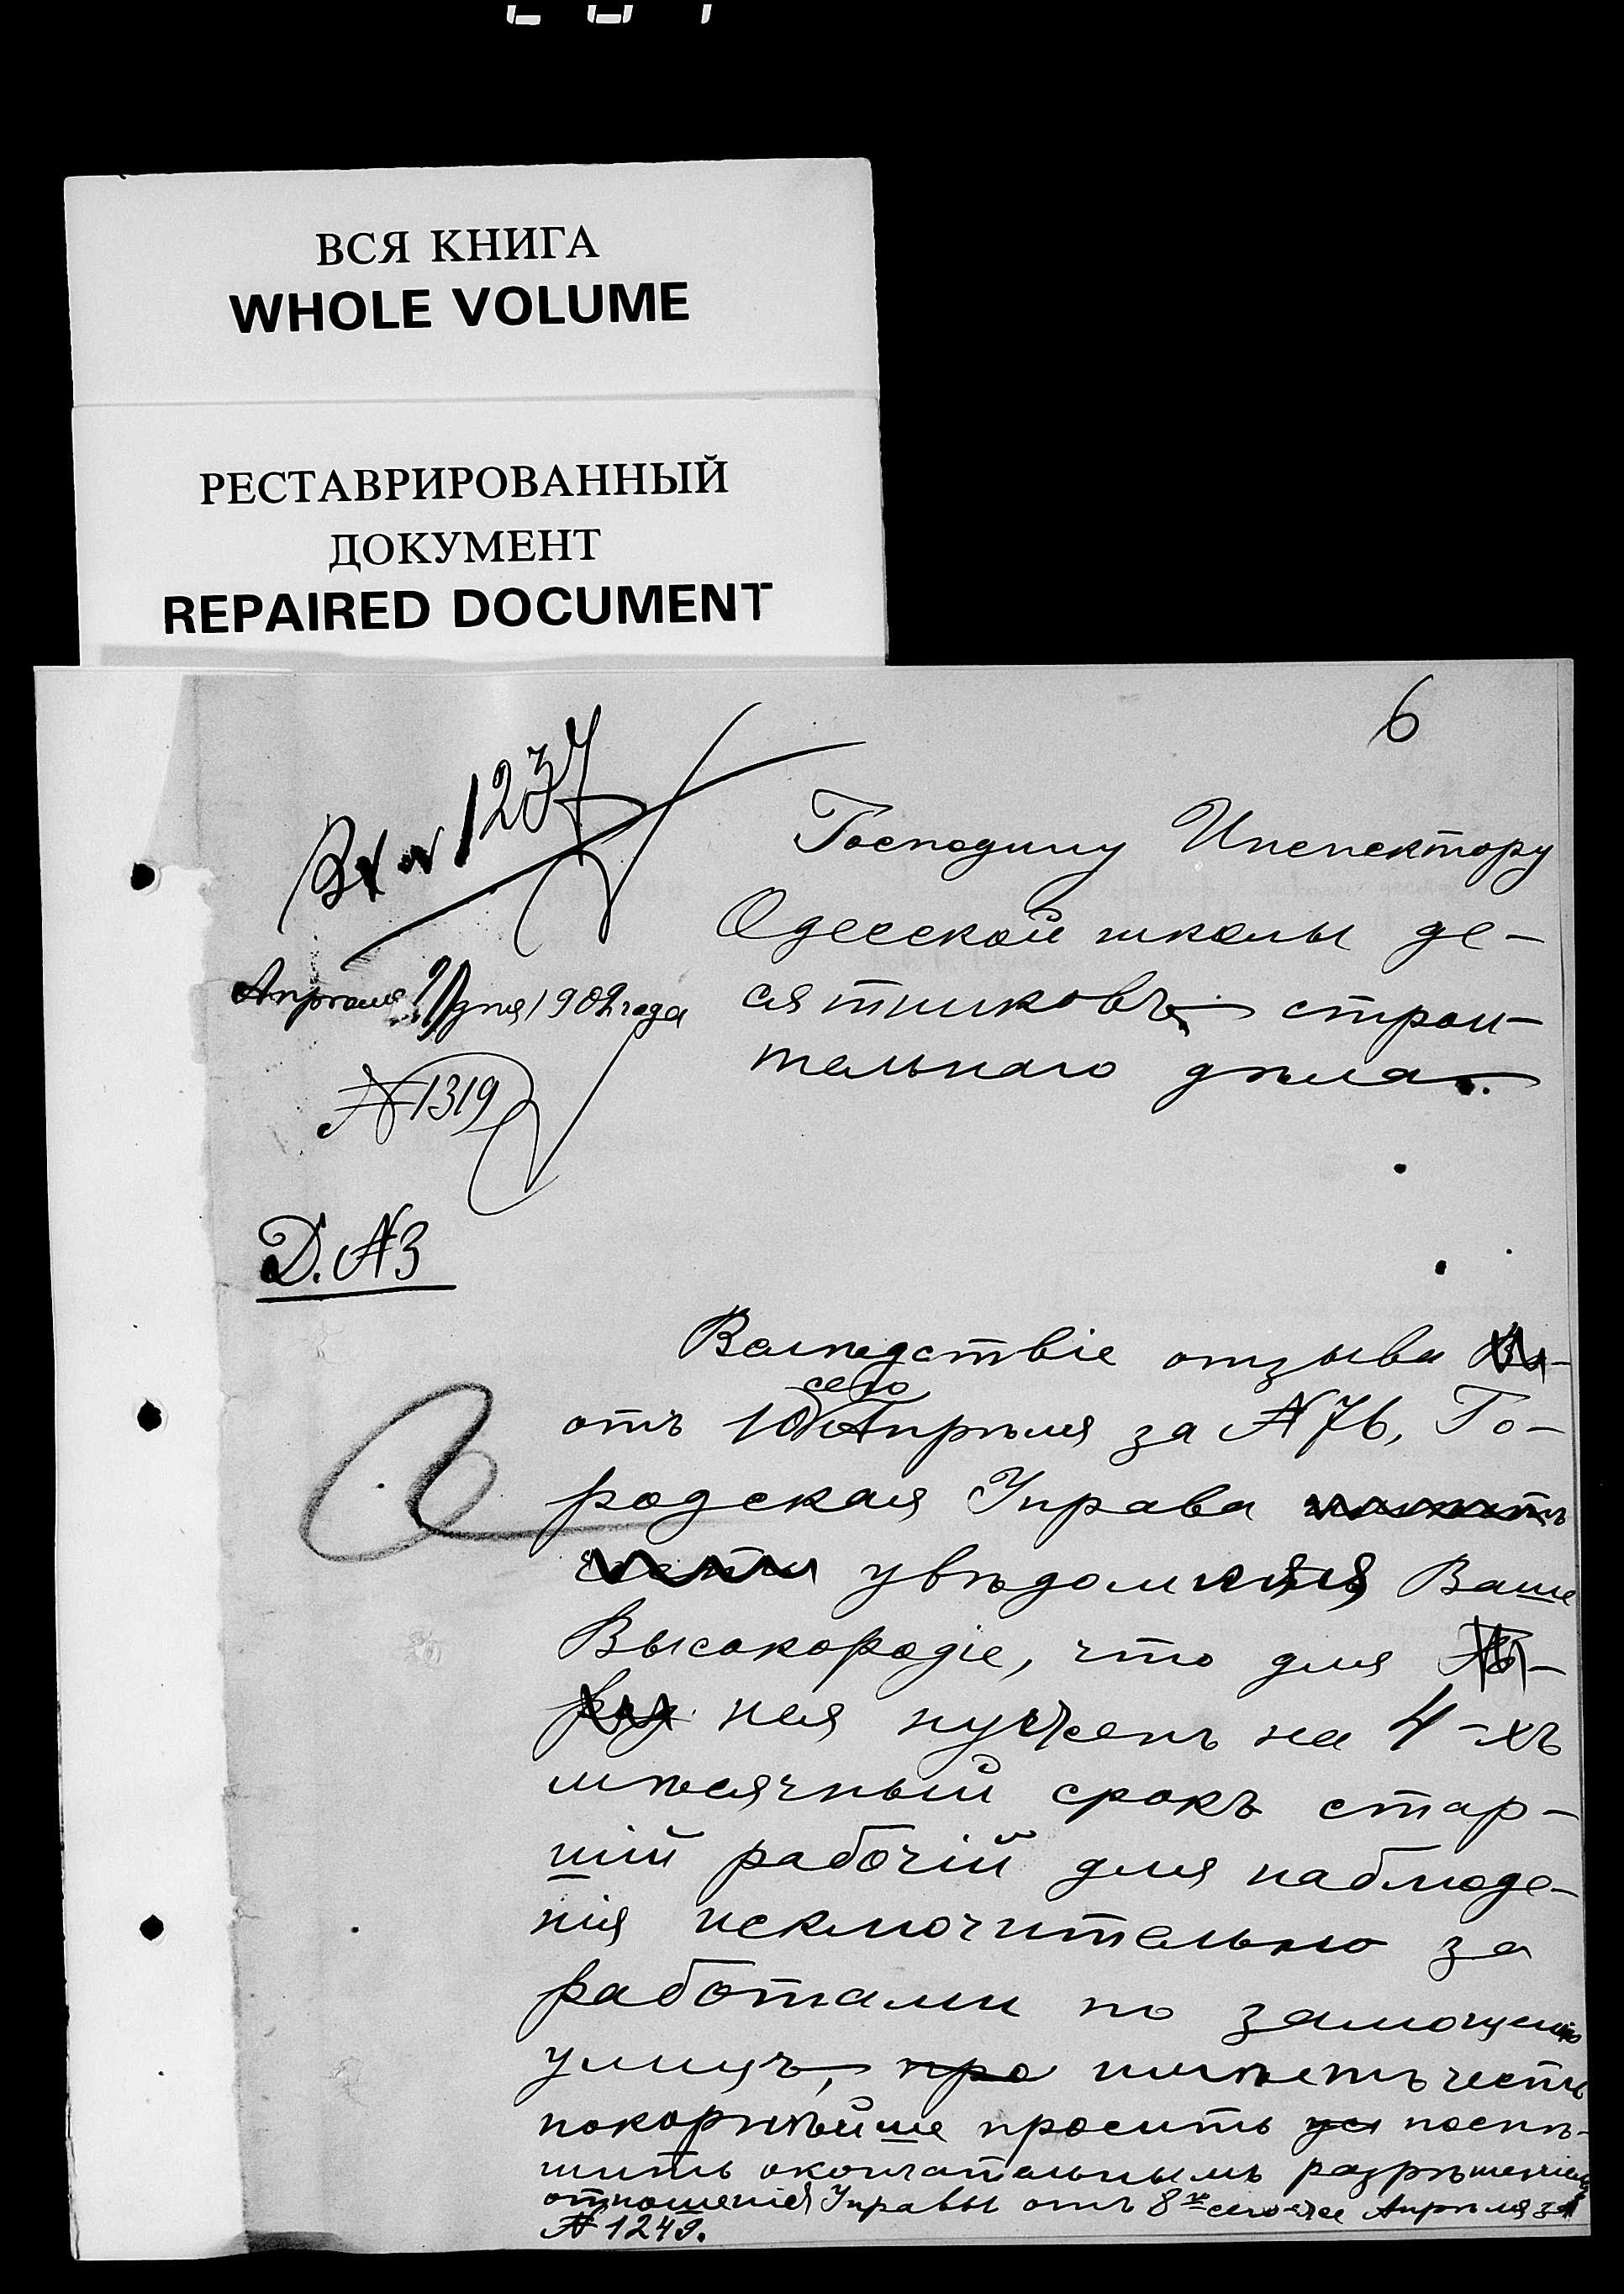 ВСЯ КНИГА
WHOLE VOLUME
РЕСТАВРИРОВАННЫЙ
ДОКУМЕНТ
REPAIRED DOCUMENT
6
Вх № 1237
Апрѣля дня 1902 года
№ 1319
Д. № 3
Господину Инспектору
Одесской школы де-
сятниковъ строи-
тельнаго дѣла.
Вслѣдствіе отзыва
сего
отъ 10 Апрѣля за № 76, Го-
родская Управа имѣетъ
честь увѣдомляя Ваше
Высокородіе, что для
нея нуженъ на 4-хъ
мѣсячный срокъ стар-
шій рабочій для наблюде-
нія исключительно за
работами по замощенію
улицъ, про имѣетъ честь
покорнѣйше просить поспѣ-
шить окончательнымъ разрѣшеніемъ
отношенія Управы отъ 8го сего же Апрѣля за
№ 1249.